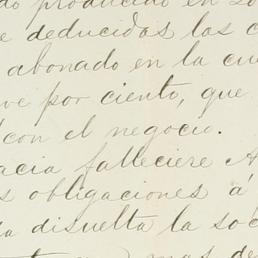 do producido en
e deducidas las
abonado en la cu
ve por ciento, que
con el negocio.
acia falleciere A
s obligaciones á
da disuelta la soc
mas de